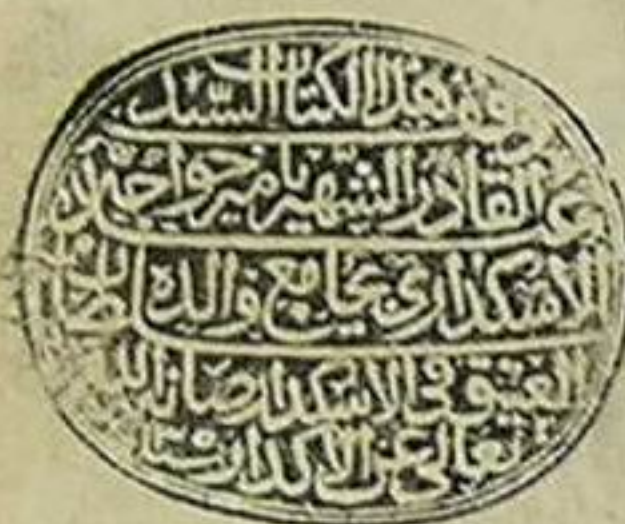 وقف هذا الكتاب السيد
عبد القادر الشهير بامير خواجه
الاسكداري بجامع والده
العتيق في الاسكدار صانها الله
تعالى عن الاكدار